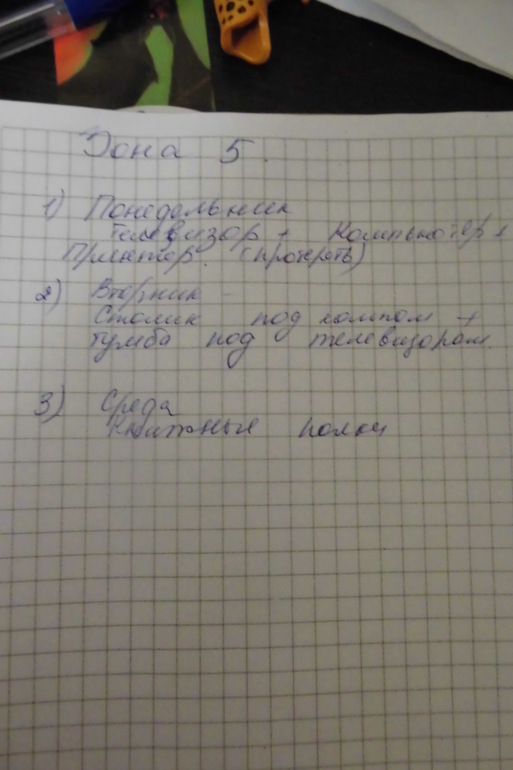 Зона 5.
1) Понедельник
Телевизор + Компьютер +
Принтор. (протереть)
2) Вторник -
Столик под компом +
тумба под телевизорам.
3) Среда
Книжные полки